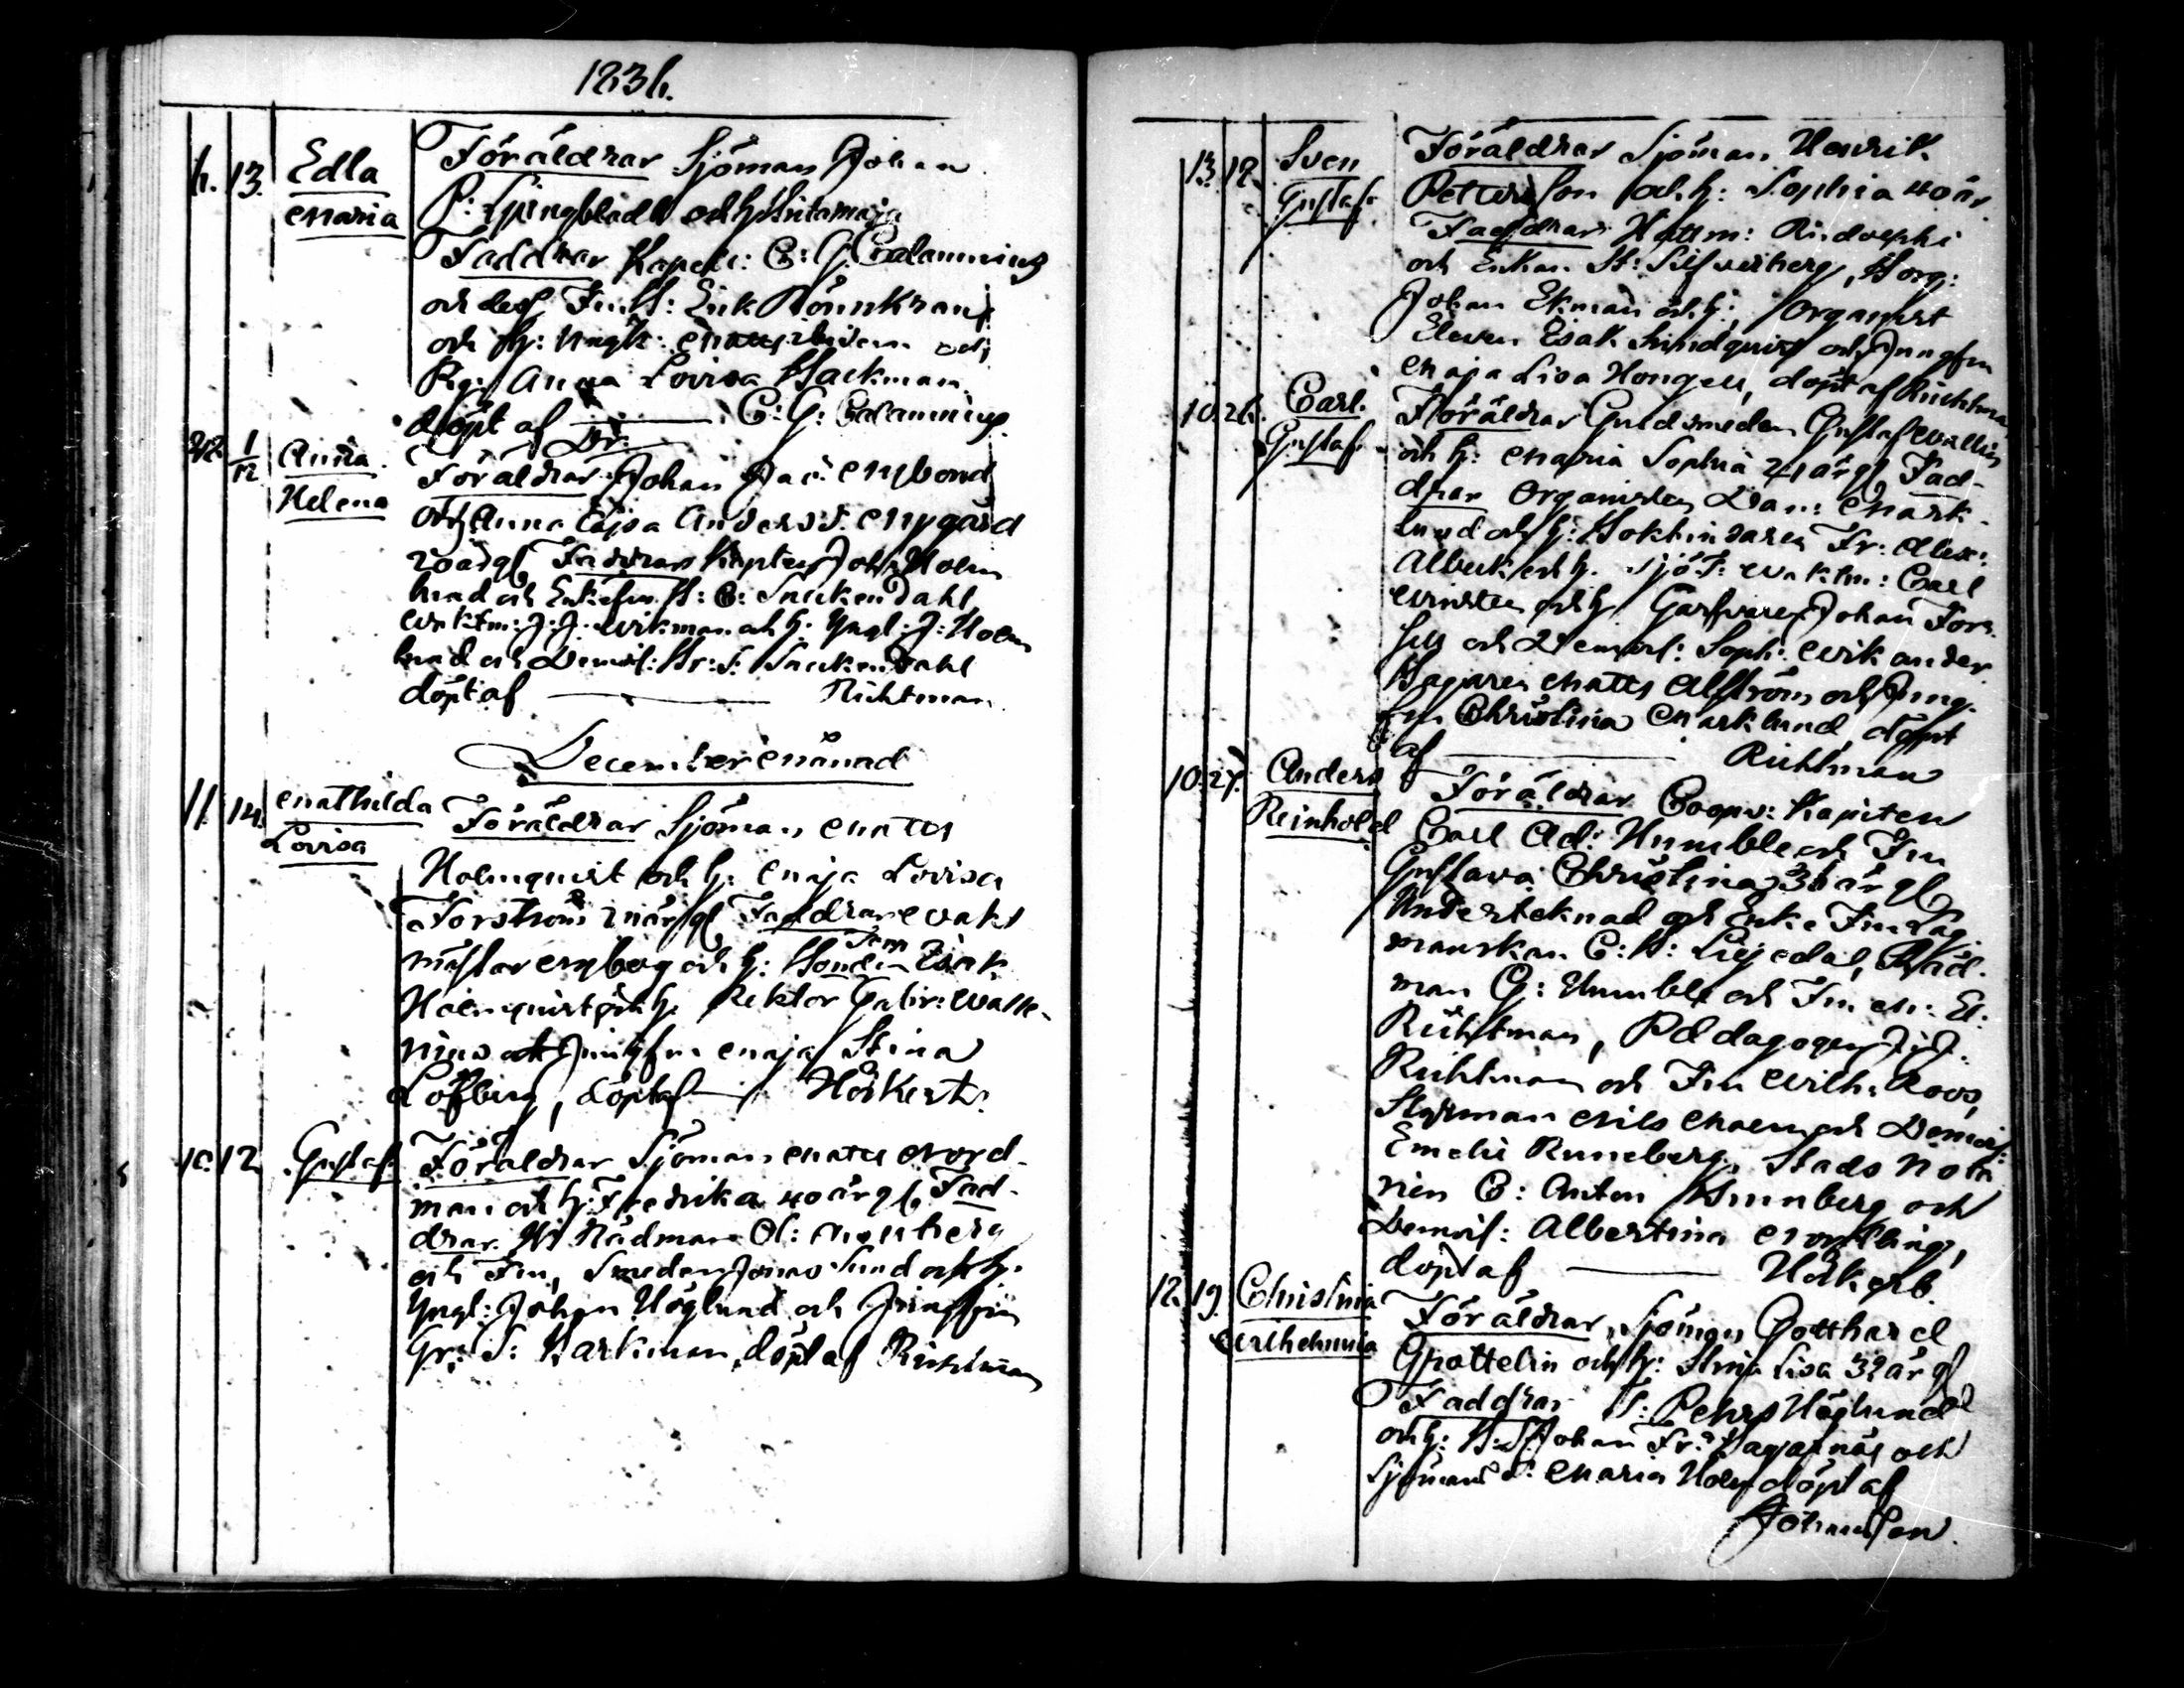 1836.
6. 13. Edla Föräldrar Sjöman Johan
Maria P: Ljungbladh och h: Lisa Maja
Faddrar Kapell: C: G. Calamnius
och dess Fru H: Erik Rönnkrans
och h: Yngl: Matts och
Pig: Anna Lovisa Backman
döpt af C: G: Calamnius
22. 1/12 Anna Föräldrar Johan Jac: Nybond
Helena och Anna Cajsa Andersd. Nygård
20 årgl Faddrar Kapten Joh: Holm
lund och Enkefru H: C: Snickendahl
Waktm: J: J: Wikman och h: Yngl: J: Holm
lund och Demois: Br: S: Snickendahl
döpt af Richtman
December Månad
11. 14. Mathilda Föräldrar Sjöman Matts
Lovisa
Holmquist och h: Maja Lovisa
Forström årgl Faddrar Wakt
mästar Nyberg och h: Isak
Holmquist och h: Rektor Gabr: Walle-
nius och Jungfru Maja Stina
Löfberg, döpt af Hårkert
10. 12. Gustaf Föräldrar Sjöman Matts Nord-
man och h: Fredrika 40 årgl, Fad-
drar Hr Rådman Ol: Mossberg
och Fru, Smeden Jonas Sund och h:
Yngl: Johan Höglund och Jungfru
Gr: S: Barkman, döpt af Richtman
13. 18. Sven Föräldrar Sjöman Henrik
Gustaf Petterson och h: Sophia 40 år
Faddrar Hattm: Rudolphi
och Enkan H: Silfverberg, Borg:
Johan Ekman och h:, Organist
Eleven Esak Lindquist och Jungfru
Maja Lisa Hongell, döpt af Richtman
10. 26. Carl Föräldrar Guldsmeden Gustaf Wallin
Gustaf och h: Maria Sophia årgl, Fad-
drar Organisten Dan: Mark-
lund och h: Bokbindaren Fr: Alex:
Albeck och h. Sjö T: Waktm: Carl
Winsten och h. Garfvaren Johan Fors-
sell och Demois: Soph: Wikander
Bagaren Matts Alström och Jung-
fru Christina Marklund, döpt
af Richtman
10. 27. Anders Föräldrar Coopv: Kapiten
Reinhold Carl Ad: Humble och Fru
Gustava Christina 36 årgl
Undertecknad och Enke Fru Lag-
manskan C: B: Liljedal, Råd-
man G: Humble och Fru M: El:
Richtman, Pædagogen J: J:
Richtman och Fru Wilh: Roos,
Styrman Nils Malm och Demois:
Emelie Runeberg, Stads Nota-
rien C: Anton Sunnberg och
Demois: Albertina Montling,
döpt af Hårkert.
12. 19. Christina Föräldrar, Sjöman Gotthard
Wilhelmina Gpottelin och h: Stina Lisa 32 årgl
Faddrar T: Pehrs Höglund
och h: Johan Fr: och
Sjöman D: Maria Holm döpt af
Johansson.